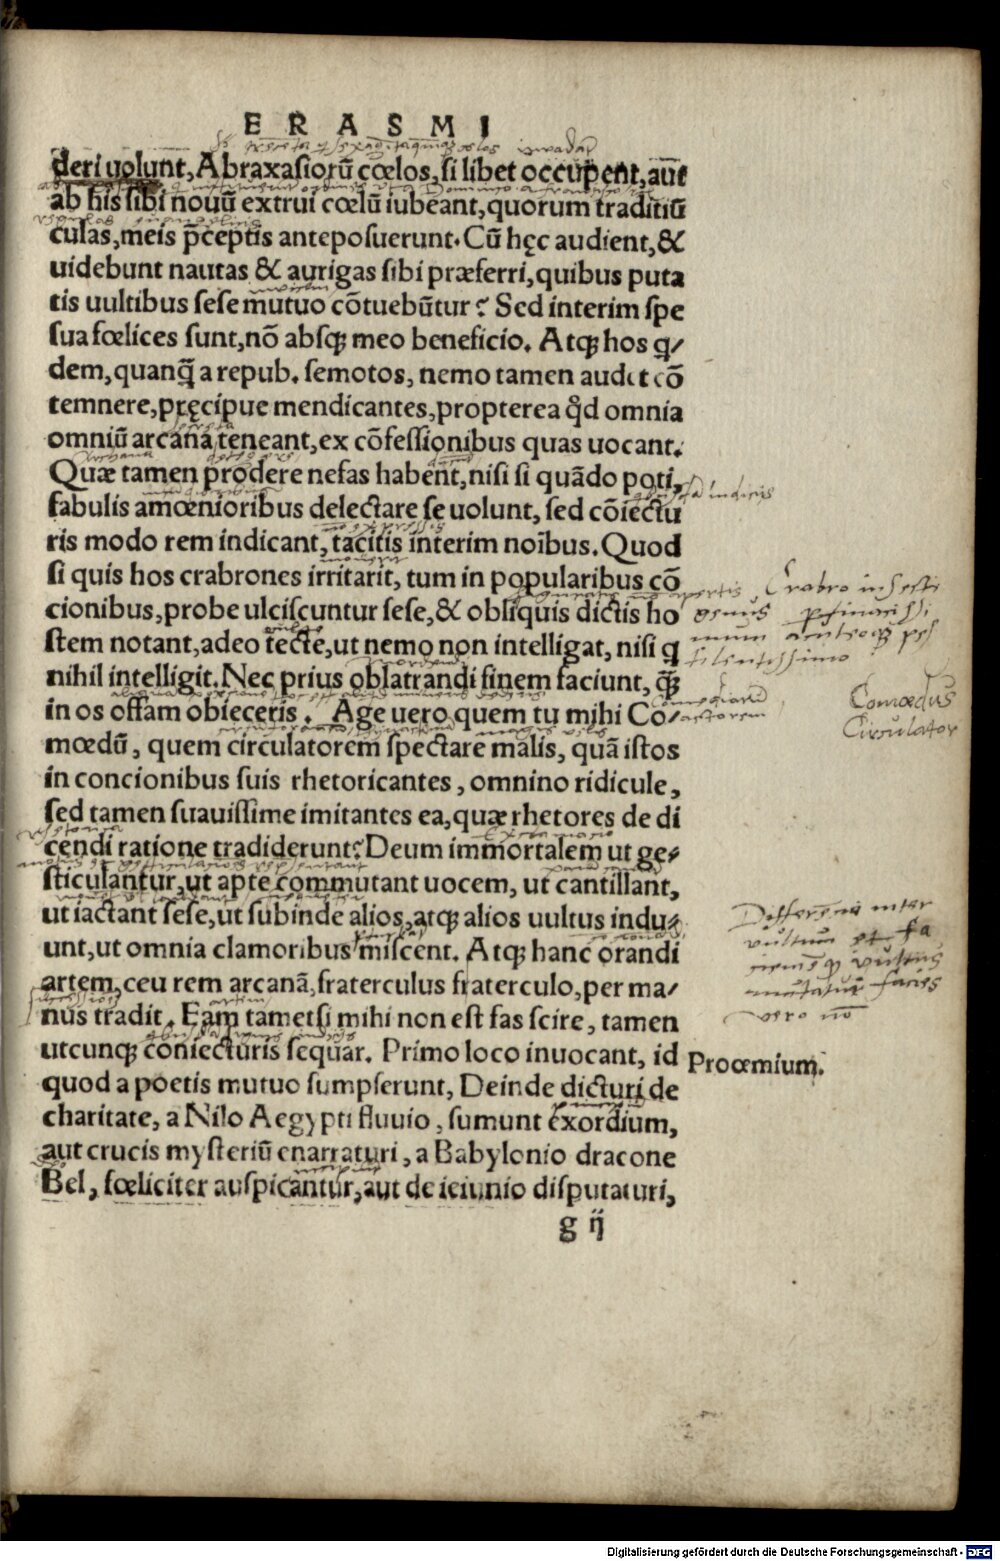 ERASMI
deri uolunt, Abraxasiorũ cœlos, si libet occupent, aut
ab his sibi nouũ extrui cœlũ iubeant, quorum traditiũ
culas, meis p̃ceptis anteposuerunt. Cũ hęc audient, &
uidebunt nautas & aurigas sibi præferri, quibus puta
tis uultibus sese mutuo cõtuebũtur? Sed interim spe
sua fœlices sunt, nõ absqꝫ meo beneficio. Atqꝫ hos q/
dem, quanq̃ a repub. semotos, nemo tamen audet cõ
temnere, pręcipue mendicantes, propterea qd̓ omnia
omniũ arcana teneant, ex cõfessionibus quas uocant.
Quæ tamen prodere nefas habent, nisi si quãdo poti,
fabulis amœnioribus delectare se uolunt, sed cõiectu
ris modo rem indicant, tacitis interim noĩbus. Quod
si quis hos crabrones irritarit, tum in popularibus cõ
cionibus, probe ulciscuntur sese, & obliquis dictis ho
stem notant, adeo tecte, ut nemo non intelligat, nisi q
nihil intelligit. Nec prius oblatrandi finem faciunt, q̃ꝫ
in os offam obieceris. Age uero quem tu mihi Co/
mœdũ, quem circulatorem spectare malis, quã istos
in concionibus suis rhetoricantes, omnino ridicule,
sed tamen suauissime imitantes ea, quæ rhetores de di
cendi ratione tradiderunt? Deum immortalem ut ge/
sticulantur, ut apte commutant uocem, ut cantillant,
ut iactant sese, ut subinde alios, atqꝫ alios uultus indu/
unt, ut omnia clamoribus miscent. Atqꝫ hanc orandi
artem, ceu rem arcanã, fraterculus fraterculo, per ma/
nus tradit. Eam tametsi mihi non est fas scire, tamen
utcunqꝫ coniecturis sequar. Primo loco inuocant, id
quod a poetis mutuo sumpserunt, Deinde dicturi de
charitate, a Nilo Aegypti fluuio, sumunt exordium,
aut crucis mysteriũ enarraturi, a Babylonio dracone
Bel, fœliciter auspicantur, aut de ieiunio disputaturi,
g ij
Crabro insecti
genus
Comœdus
Circulator
Differentia inter
vultum et fa
ciem q vultus
mutatur facies
vero nõ
Proœmium.
Digitalisierung gefördert durch die Deutsche Forschungsgemeinschaft - DFG